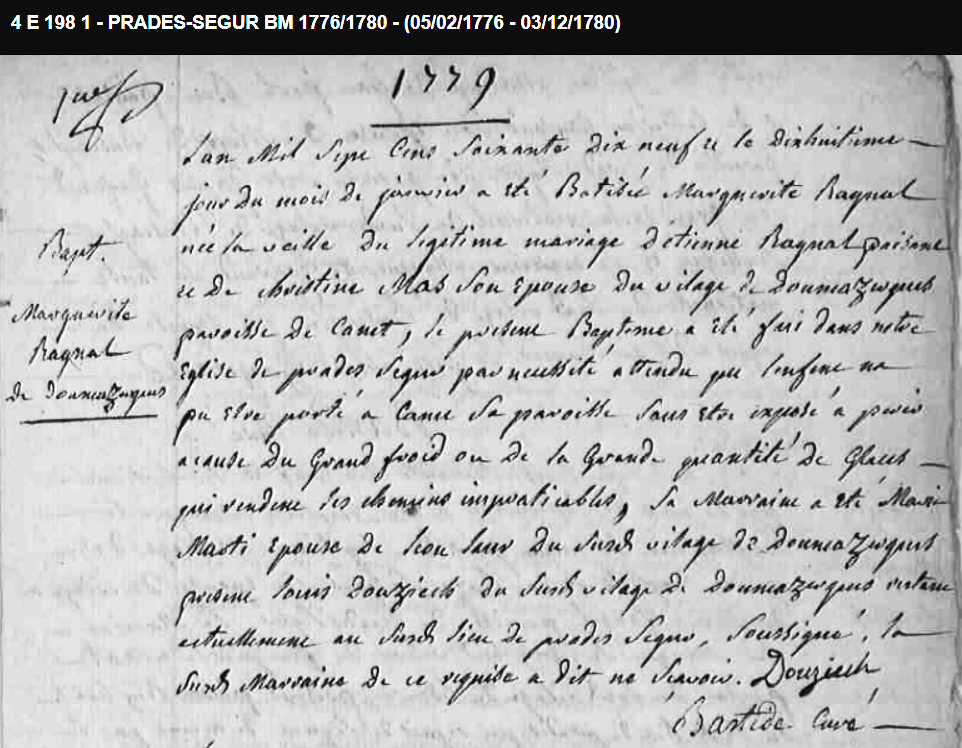 4 E 198 1 - PRADES-SEGUR BM 1776/1780 - (05/02/1776 - 03/12/1780)
1779
Bapt.
Marguerite
Ragnal
de doumazergues
Lan Mil Sept Cens Soixante dix neuf et le dixhuitieme
jour du mois de janvier a eté Batisée Marguerite Ragnal
née la veille du legitime mariage detienne Ragnal paisant
et de christine Mas Son Epouse du vilage de doumazergues
paroisse de Canet, le present Bapteme a eté fait dans notre
Eglise de prades Segur par necessité attendu que lenfent na
pu etre porté a Canet Sa paroisse Sans etre exposé a perir
acause du Grand froid ou de la Grande quantité de Glaces
qui rendent les chemins impraticables, Sa Marraine a eté Marie
Marti Epouse de leon Saur du Surdt vilage de Doumazergues
present louis douziech du Surdt vilage de Doumazergues restant
actuellement au Surdt lieu de prades Segur, Soussigné, la
Surdt Marraine de ce requise a dit ne Scavoir. Douziech
Bastide Curé